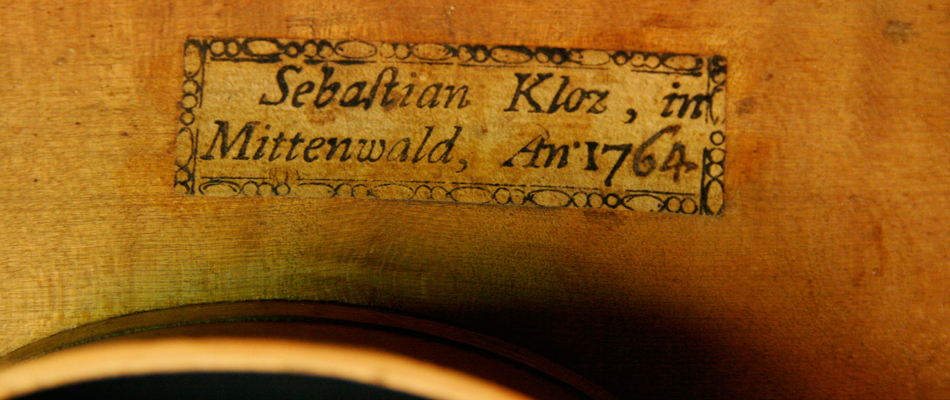 Sebaſtian Kloz, in
Mittenwald, An· 1764